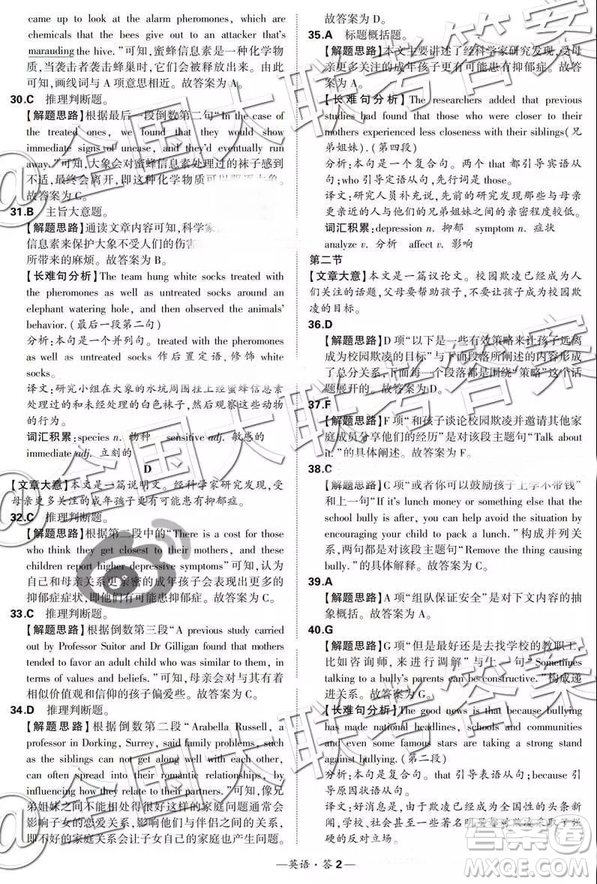 came up to look at the alarm pheromones, which are
chemicals that the bees give out to an attacker that's
marauding the hive."可知,蜜蜂信息素是一种化学物
质,当袭击者袭击蜂巢时,蜜蜂就会释放这种化学物质。由此
可知,画线词与 A 项意思相近。故答案为 A。
30.C 推理判断题。
【解题思路】根据最后一段倒数第二句"In the case of
the treated ones, we found that they would show
immediate signs of unease, and they'd eventually run
away."可知,大象会对蜜蜂信息素处理过的袜子感到
不适,最终会离开,即这种化学物质可以
故答案为 C。
31.B 主旨大意题。
【解题思路】通读文章内容可知,科学家
信息素来保护大象不受人们的伤害
所带来的麻烦。故答案为 B。
【长难句分析】The team hung white socks treated with
the pheromones as well as untreated socks around an
elephant watering hole, and then observed the animals'
behavior.(最后一段第二句)
分析:本句是一个并列句。treated with the pheromones
as well as untreated socks 作后置定语,修饰 white
socks。
译文:研究小组在大象的水坑周围挂上经蜜蜂信息素
处理过的和未经处理过的白色袜子,然后观察这些动物
的行为。
词汇积累:species n. 物种 sensitive adj. 敏感的
immediate adj. 立刻的
D
【文章大意】本文是一篇说明文。经科学家研究发现,受
母亲更多关注的成年孩子更有可能患有抑郁症。
32.C 推理判断题。
【解题思路】根据第二段中的"There is a cost for those
who think they get closest to their mothers, and these
children report higher depressive symptoms"可知,认为
和母亲关系亲密的孩子有可能会表现出更多抑郁
症状。故答案为 C。
33.C 推理判断题。
【解题思路】根据倒数第三段"A previous study carried
out by Professor Suitor and Dr Gilligan found that mothers
tended to favor an adult child who was similar to them in
terms of values and beliefs."可知,母亲会与和自己的价
值观和信仰一样的孩子偏爱有加。故答案为 C。
34.D 推理判断题。
【解题思路】根据倒数第二段"Arabella Russell,
professor in Dorking, Surrey, said family problems, such
as the siblings not get along well with each other, can
linger into their romantic relationships, influencing
how they relate to their mates"可知,像兄
弟姐妹之间相处得很好这样的家庭问题通常会影
响到子女的恋爱关系,影响子女与他们伴侣的关系。
家庭关系会让子女自己的家庭也产生问题。故答案
为 D。
35.A 标题概括题。
【解题思路】本文主要讲述了经科学家研究发现,母亲
更多关注的成年孩子更有可能患上抑郁症。故答案
为 A。
【长难句分析】The researchers added that previous
studies had found that those who had depression
experienced less closeness with their siblings(兄弟
姐妹).(第四段)
分析:本句是一个复合句。两个 that 都引导宾语从
句;who 引导定语从句,先行词为 those。
译文:研究人员补充说,先前的研究发现那些与母
亲患抑郁症的人与他们的兄弟姐妹之间的亲密程度较低。
词汇积累:depression n. 抑郁 symptom n. 症
状 analysis n. 分析 affect v. 影响
第二节
【文章大意】本文是一篇议论文。校园欺凌已经成为人
们关注的话题,父母要帮助孩子,不要让孩子成为校园欺
凌的目标。
36.D
【解题思路】D 项"以下是一些有效策略来让孩子远离
成为校园欺凌的目标"与下面的段落所阐述的内容形
成了总分关系,下面的每一个段落都是围绕"策略"这个话
题展开的。故答案为 D。
37.F
【解题思路】F 项"和孩子谈论校园欺凌并邀请其他家
庭成员分享他们的经历"是对该段主题句"Talk about
it."的具体阐述。故答案为 F。
38.C
【解题思路】C 项"或者你可以鼓励孩子上学不带钱"
和上一句"If it's lunch money or something else that the
school bully is after, you can help avoid the situation by
encouraging your child to pack a lunch."构成并列关
系,两句都是对该段主题句"Remove the thing causing
bullying."的具体阐述。故答案为 C。
39.A
【解题思路】A 项"组队保证安全"是对下文内容的
抽象概括。故答案为 A。
40.G
【解题思路】G 项"但是最好还是去找学校的教职工,
比如咨询师,来与他们谈"与上一句"Sometimes
talking to a bully's parents can be constructive."构成递
进关系。故答案为 G。
【长难句分析】The good news is that because bullying
has made national headlines, schools and communities
and even some famous stars are taking a tough stand
against bullying.(第二段)
分析:本句是一个复合句。that 引导表语从句,
because 引导原因状语从句。
译文:好消息是,由于欺凌已经成为全国性的头条新
闻,学校和社会甚至一些著名明星正在对欺凌采取强
硬的反对立场。
—英语·答2—
@全国大联考答案
@全国大联考答案
@全国大联考答案
答案圈
MXQE.COM